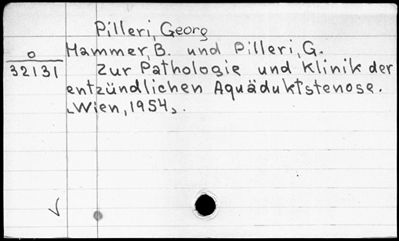 Pilleri, Georg
Hammer, B. und Pilleri, G.
o
32131
Zur Pathologie und Klinik der
entzündlichen Aquäduktstenose.
Wien, 1954.